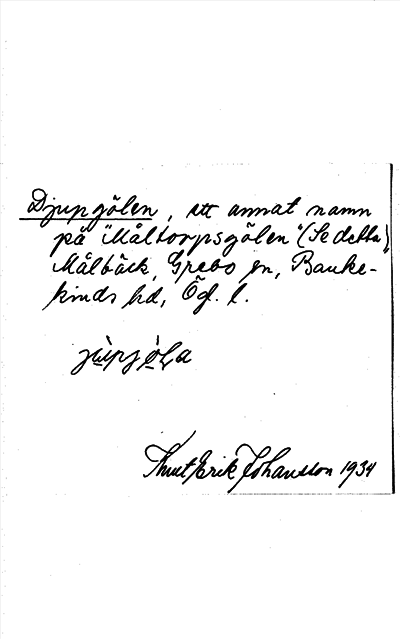 Djupgölen, ett annat namn
på "Måltorpsgölen" (Se detta),
Målbäck, Grebo sn, Banke-
kinds hd, Ög. l.
Knut Erik Johansson 1934